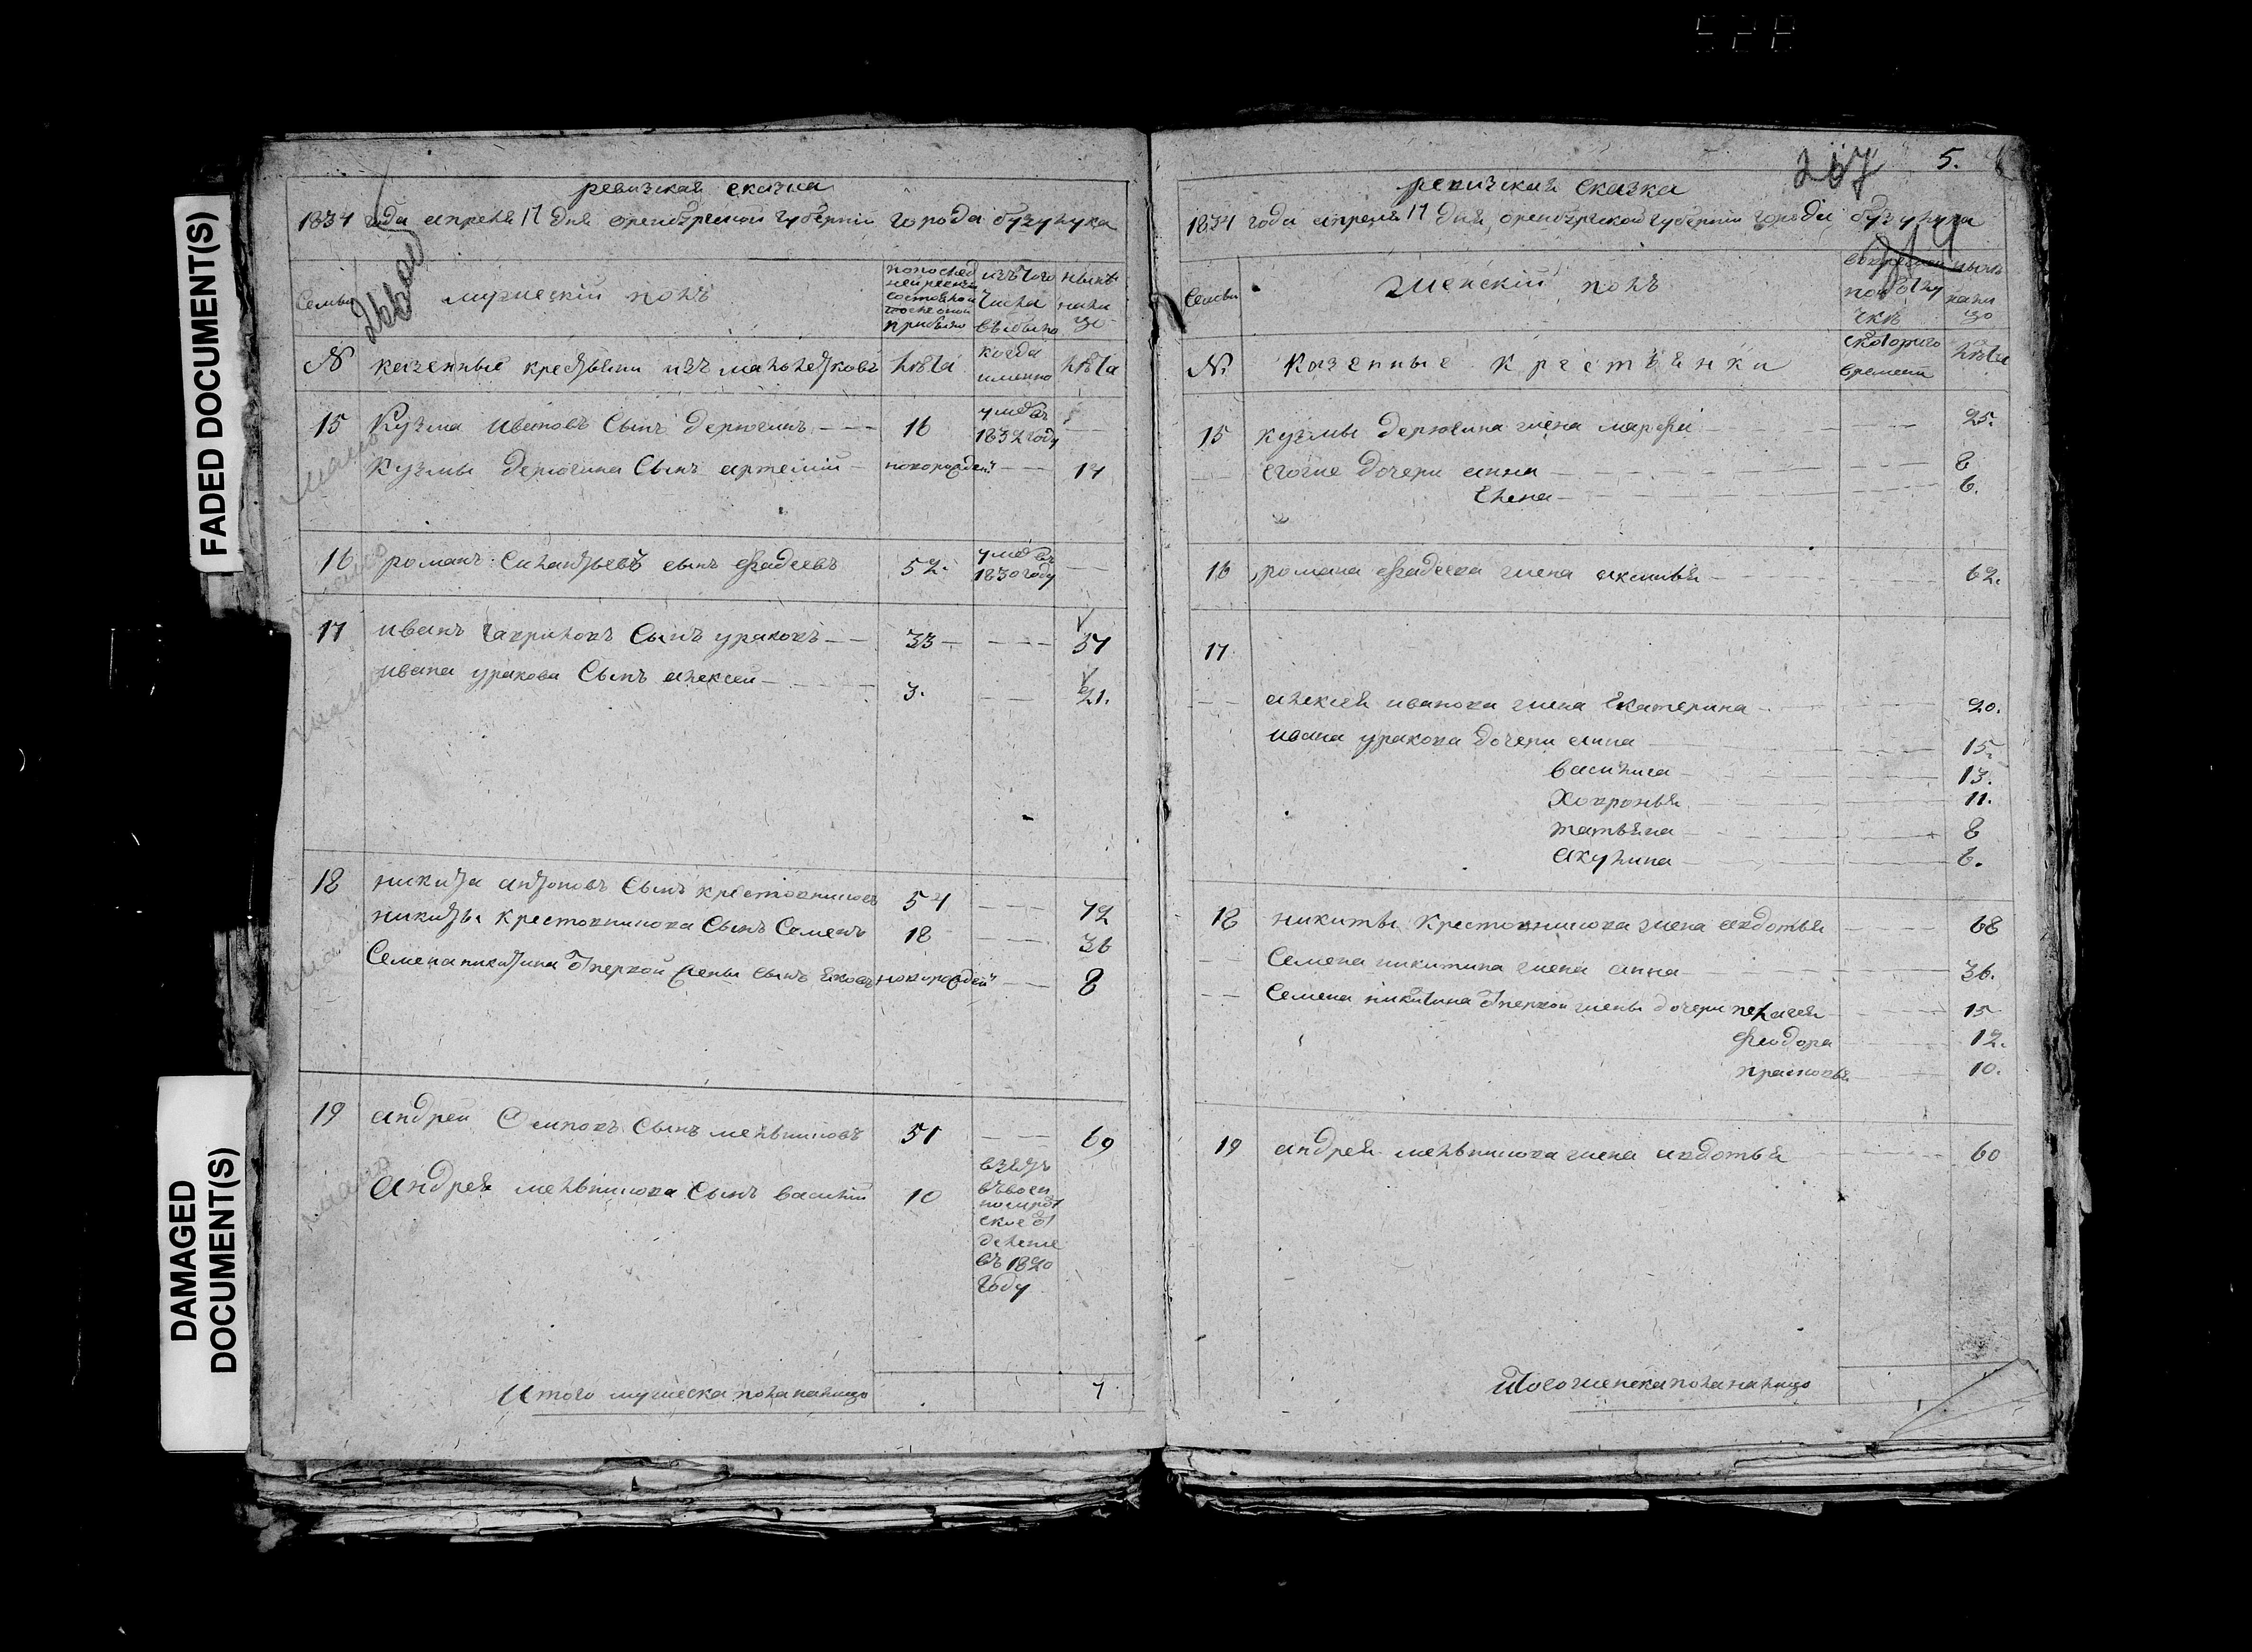 FADED DOCUMENT(S)
DAMAGED DOCUMENT(S)
ревизская сказка
1834 года апреля 17 дня оренбургской губернiи города бузулука
Семьи
мужескiй полъ
по последней ревизiи состояло и после оной прибыло
изъ того числа выбыло
нынѣ на лицо
№
казенные крестьяни изъ малолетковъ
лѣта
когда именно
лѣта
15 Кузма Ивановъ Сынъ Дерюгинъ 16 умеръ въ 1832 году
Кузмы Дерюгина Сынъ артемiй новорожденъ 14
16 романъ Силантьевъ сынъ фадеевъ 52. умеръ въ 1830 году
17 иванъ Гавриловъ Сынъ ураковъ 33 51
ивана уракова Сынъ алексей 3. 21.
18 никита антоновъ Сынъ крестовниковъ 54 72
никиты крестовникова Сынъ Семенъ 18 36
Семена никитина от первой жены сынъ яковъ новорожденъ 8
19 андрей Осиповъ Сынъ мельниковъ 51 69
Андрея мельникова Сынъ василiй 10 взятъ въ военно сиротское отделенiе въ 1820 году
Итого мужеска пола налицо 7
267 5.
ревизская сказка
1834 года апреля 17 дня оренбургской губернiи города бузулука
Семьи
женскiй полъ
во временной отлучкѣ
нынѣ на лицо
№
казенные крестьянки
с которого времени
лѣта
15 кузмы дерюгина жена марфа 25.
его же дочери анна 8
елена 6.
16 романа фадеева жена аксинья 62.
17
алексея иванова жена Екатерина 20.
ивана уракова дочери анна 15.
василиса 13.
Ховронья 11.
татьяна 8
акулина 6.
18 никиты Крестовникова жена авдотья 68
Семена никитина жена анна 36.
Семена никитина от первой жены дочери пелагея 15
феодора 12.
прасковья 10.
19 андрея мельникова жена авдотья 60
Итого женска пола налицо